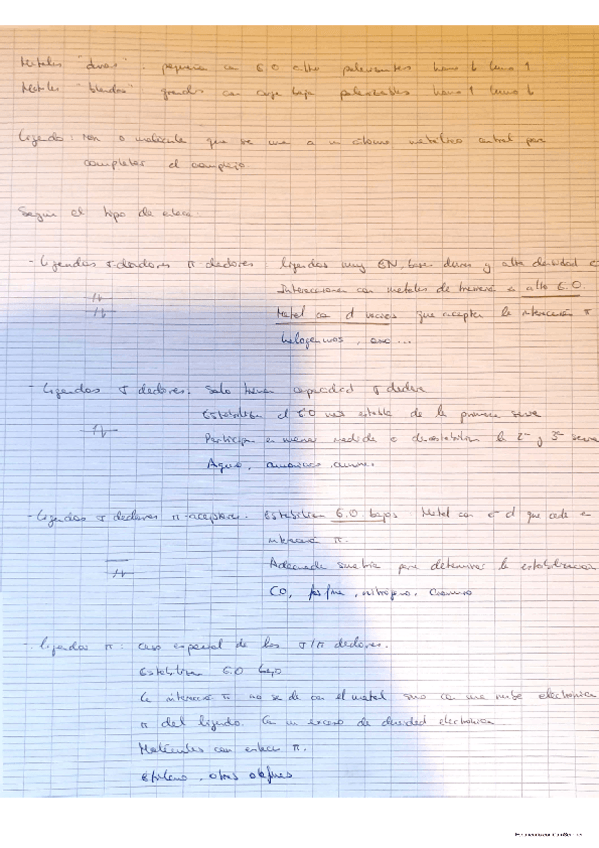 Metales "duros": pequeños con E.O alto polarizantes
Metales "blandos" grandes con carga baja polarizables
Ligando: ion o molécula que se une a un átomo metálico central para
completar el complejo.
Según el tipo de enlace:
- Ligandos σ-dadores π-dadores ligandos muy EN, bases duras y alta densidad e
Interaccionan con metales de transición a alto E.O.
Metal con d vacíos que acepten la interacción π
halogenuros, oxo...
- Ligandos σ dadores. Solo tienen capacidad σ dadora
Estabilizan el E.O más estable de la primera serie
Participan en menor medida o desestabilizan la 2ª y 3ª serie
Agua, amoniaco, aminas.
- Ligandos σ dadores π-aceptores. Estabilizan E.O bajos. Metal con e d que cede en
interacción π.
Adecuada simetría para determinar la estabilización
CO, fosfina, nitrógeno, cianuro
- Ligandos π: caso especial de los σ/π dadores.
Estabilizan E.O bajo
La interacción π no se da con el metal sino con una nube electrónica
π del ligando. Con un exceso de densidad electrónica.
Moléculas con enlaces π.
Etileno, otras olefinas